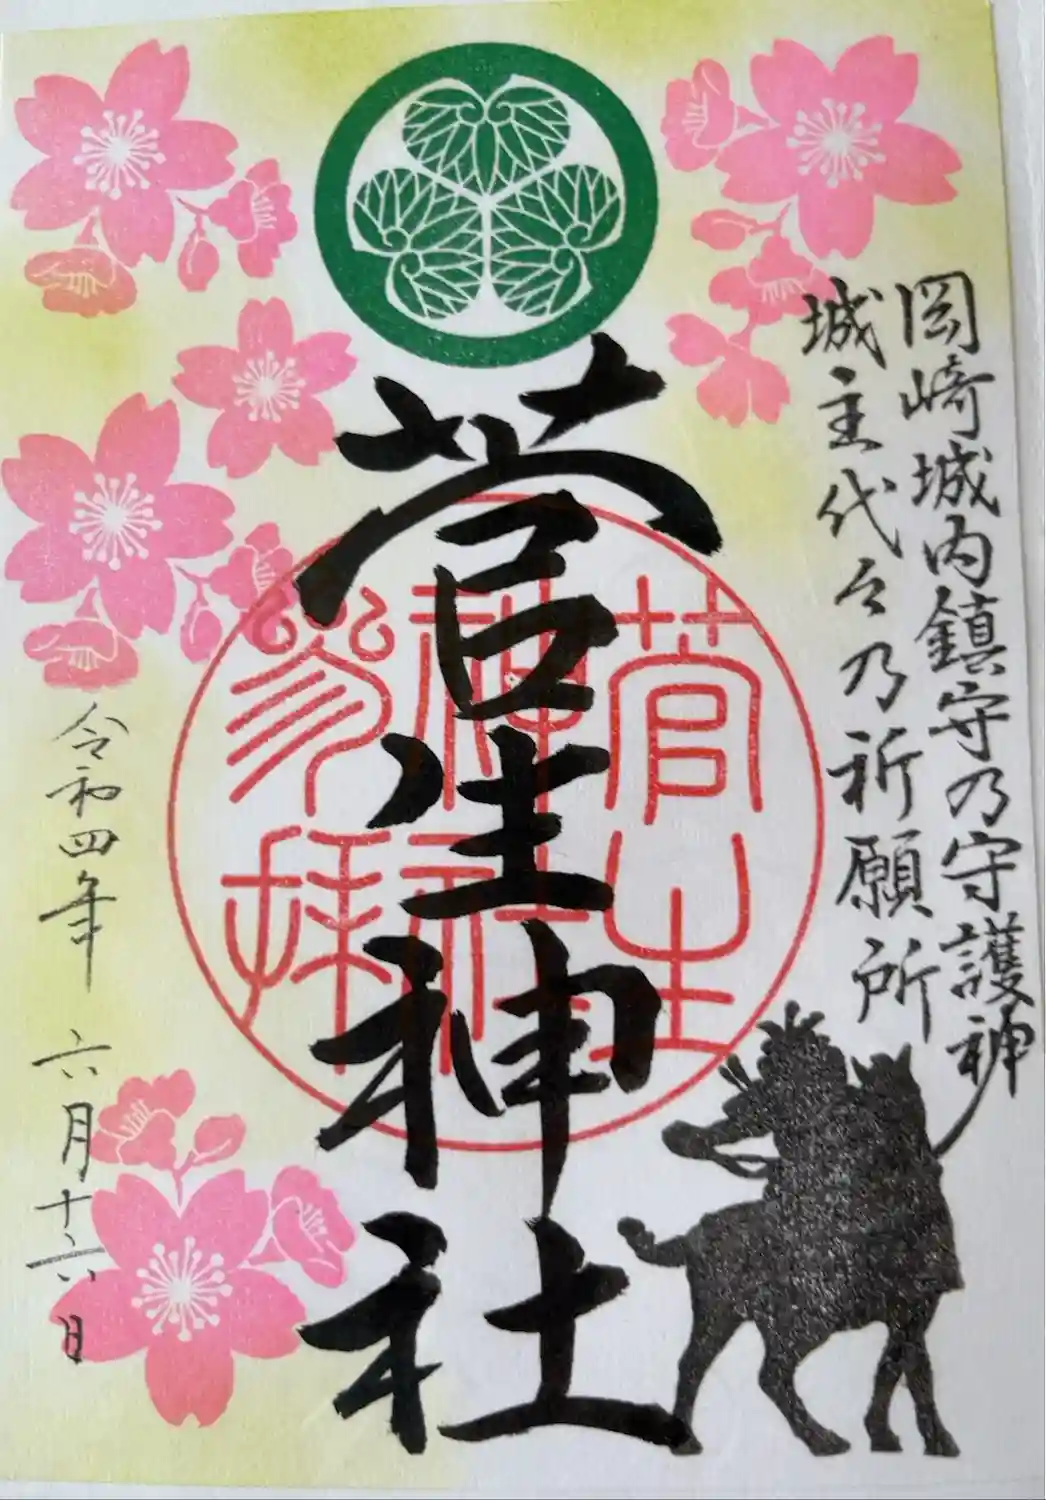 岡崎城内鎮守乃守護神
城主代々乃祈願所
菅生神社
菅生
神社
参拝
令和四年 六月十六日